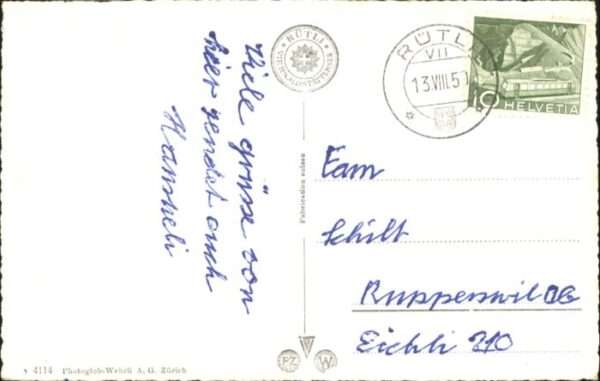 Viele grüsse von
hier sendet euch
Hansueli
RÜTLI
RÜTLI
VII
13.VIII.5
10 HELVETIA
Fabrication suisse
Fam
Schilt
Rupperswil AG
Eichli 210
4114 Photoglob-Wehrli A. G. Zürich
PZ W